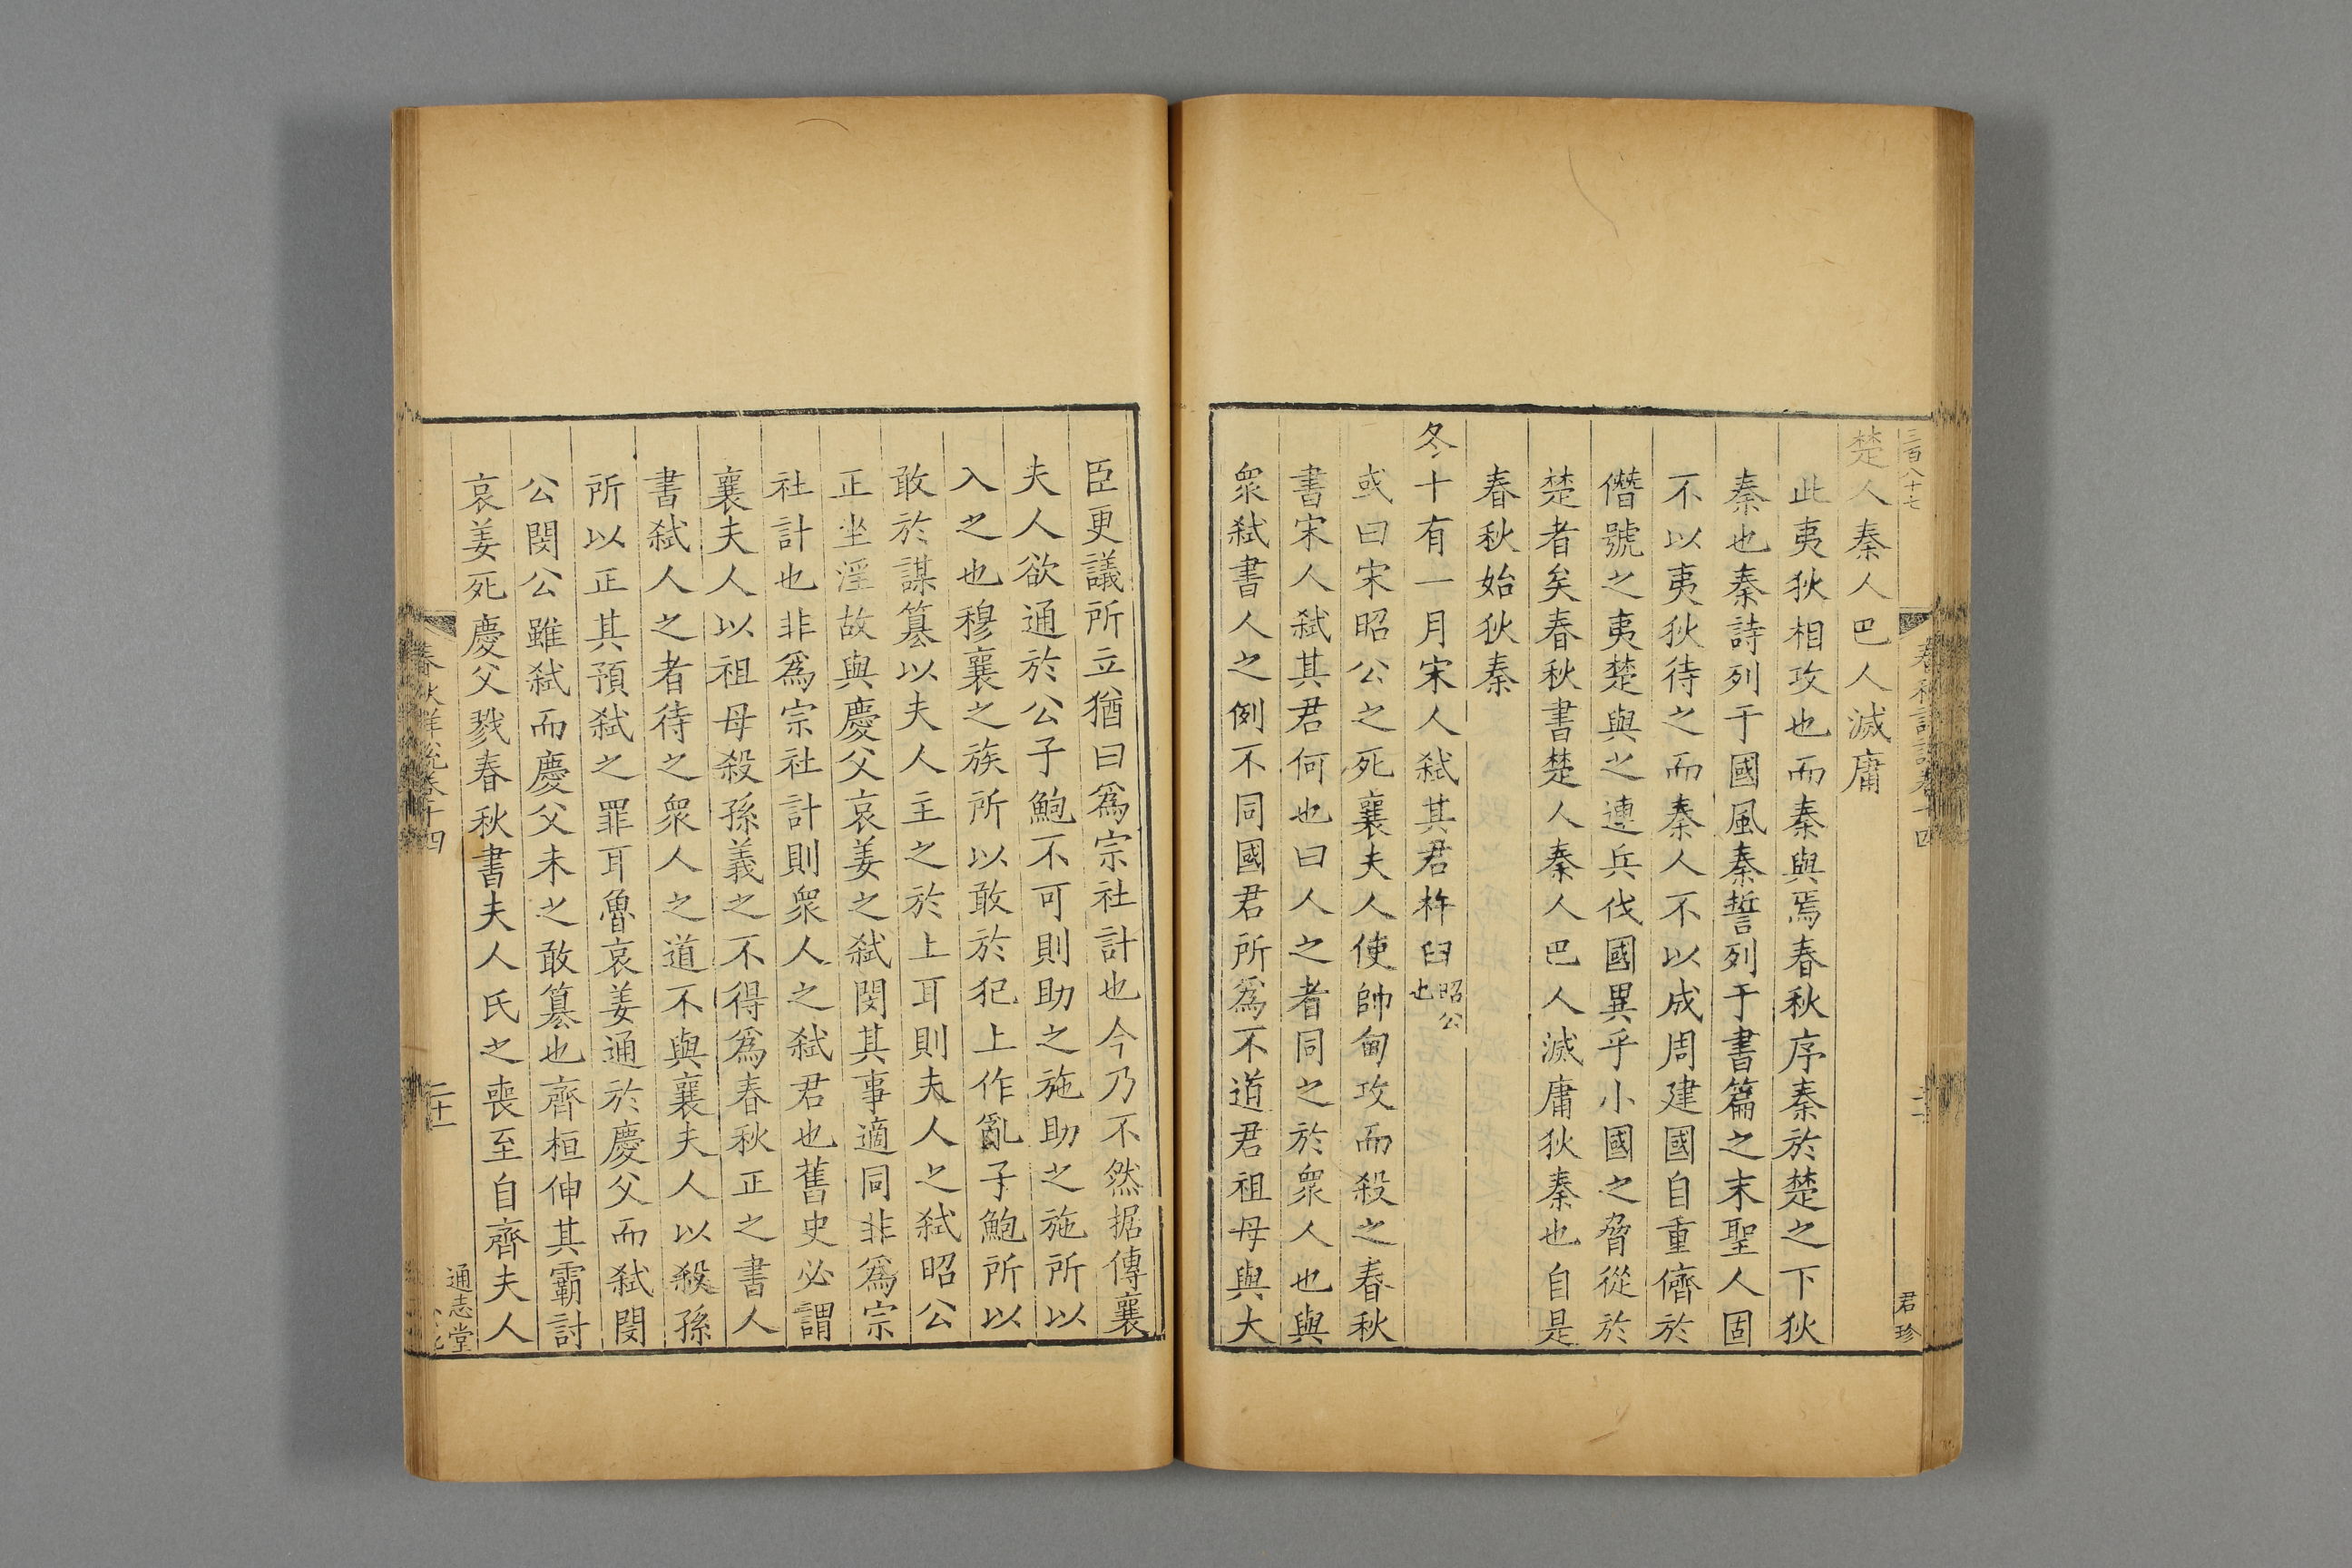 三百八十七
君珍
楚人秦人巴人滅庸
此夷狄相攻也而秦與焉春秋序秦於楚之下狄
秦也秦詩列于國風秦誓列于書篇之末聖人固
不以夷狄待之而秦人不以成周建國自重儕於
僭號之夷楚與之連兵伐國異乎小國之脅從於
楚者矣春秋書楚人秦人巴人滅庸狄秦也自是
春秋始狄秦
冬十有一月宋人弑其君杵臼昭公也
或曰宋昭公之死襄夫人使帥甸攻而殺之春秋
書宋人弑其君何也曰人之者同之於衆人也與
衆弑書人之例不同國君所爲不道君祖母與大
臣更議所立猶曰爲宗社計也今乃不然据傳襄
夫人欲通於公子鮑不可則助之施助之施所以
入之也穆襄之族所以敢於犯上作亂子鮑所以
敢於謀篡以夫人主之於上耳則夫人之弑昭公
正坐淫故與慶父哀姜之弑閔其事適同非爲宗
社計也非爲宗社計則衆人之弑君也舊史必謂
襄夫人以祖母殺孫義之不得爲春秋正之書人
書弑人之者待之衆人之道不與襄夫人以殺孫
所以正其預弑之罪耳魯哀姜通於慶父而弑閔
公閔公雖弑而慶父未之敢篡也齊桓伸其霸討
哀姜死慶父戮春秋書夫人氏之喪至自齊夫人
春秋詳說卷十四
二十一
通志堂